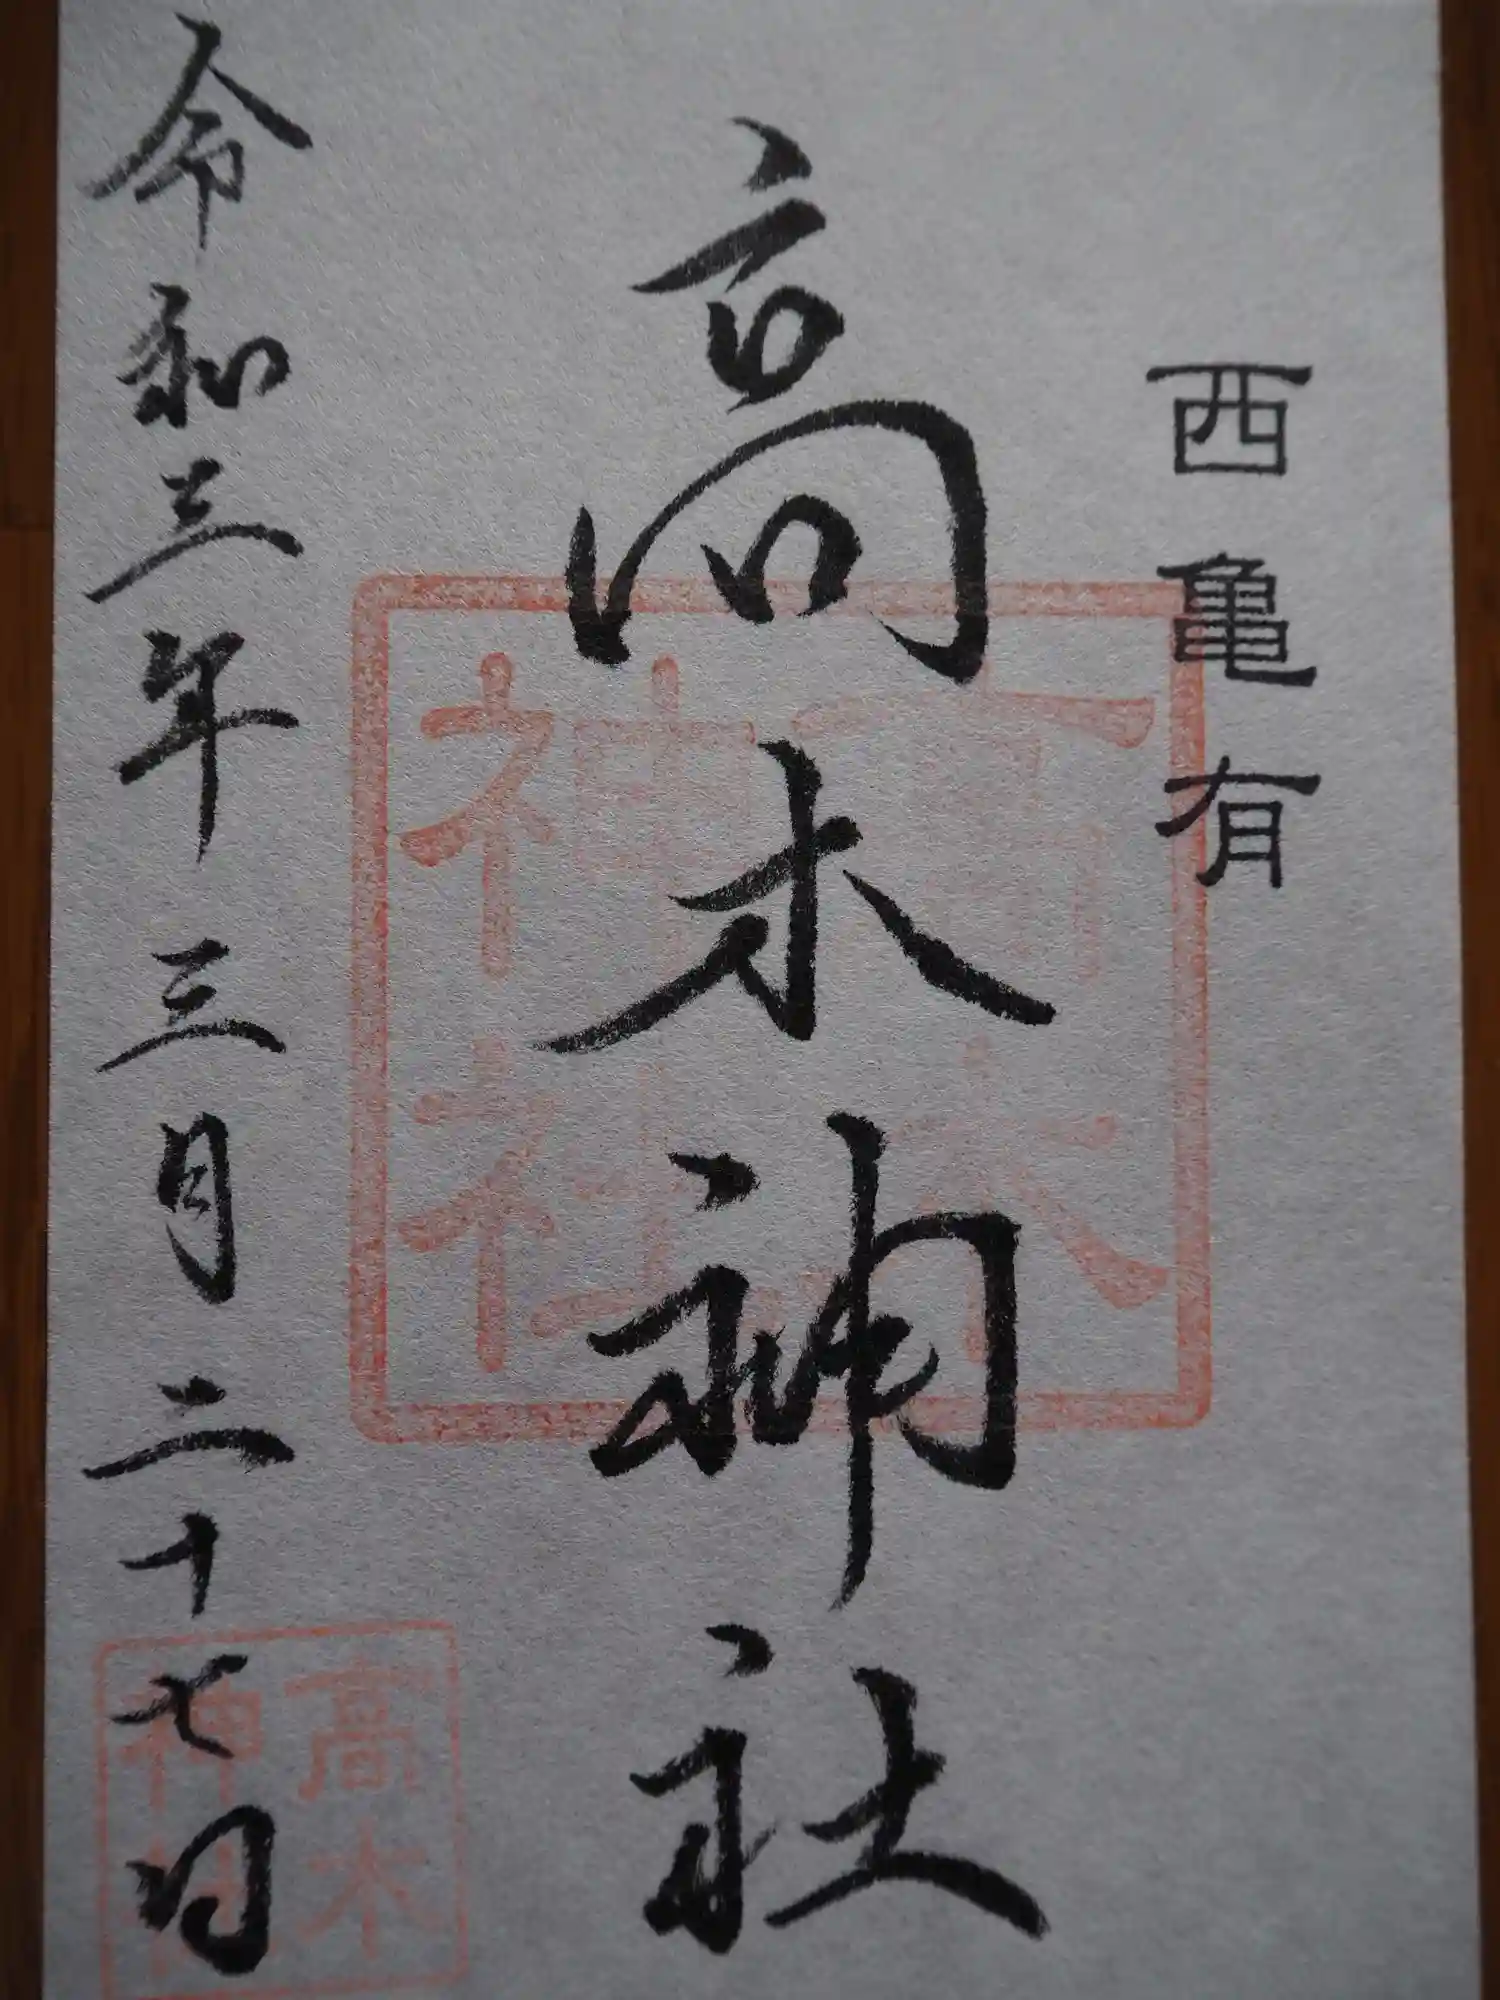 西亀有
高木神社
高木
神社
令和三年三月二十七日
高木
神社